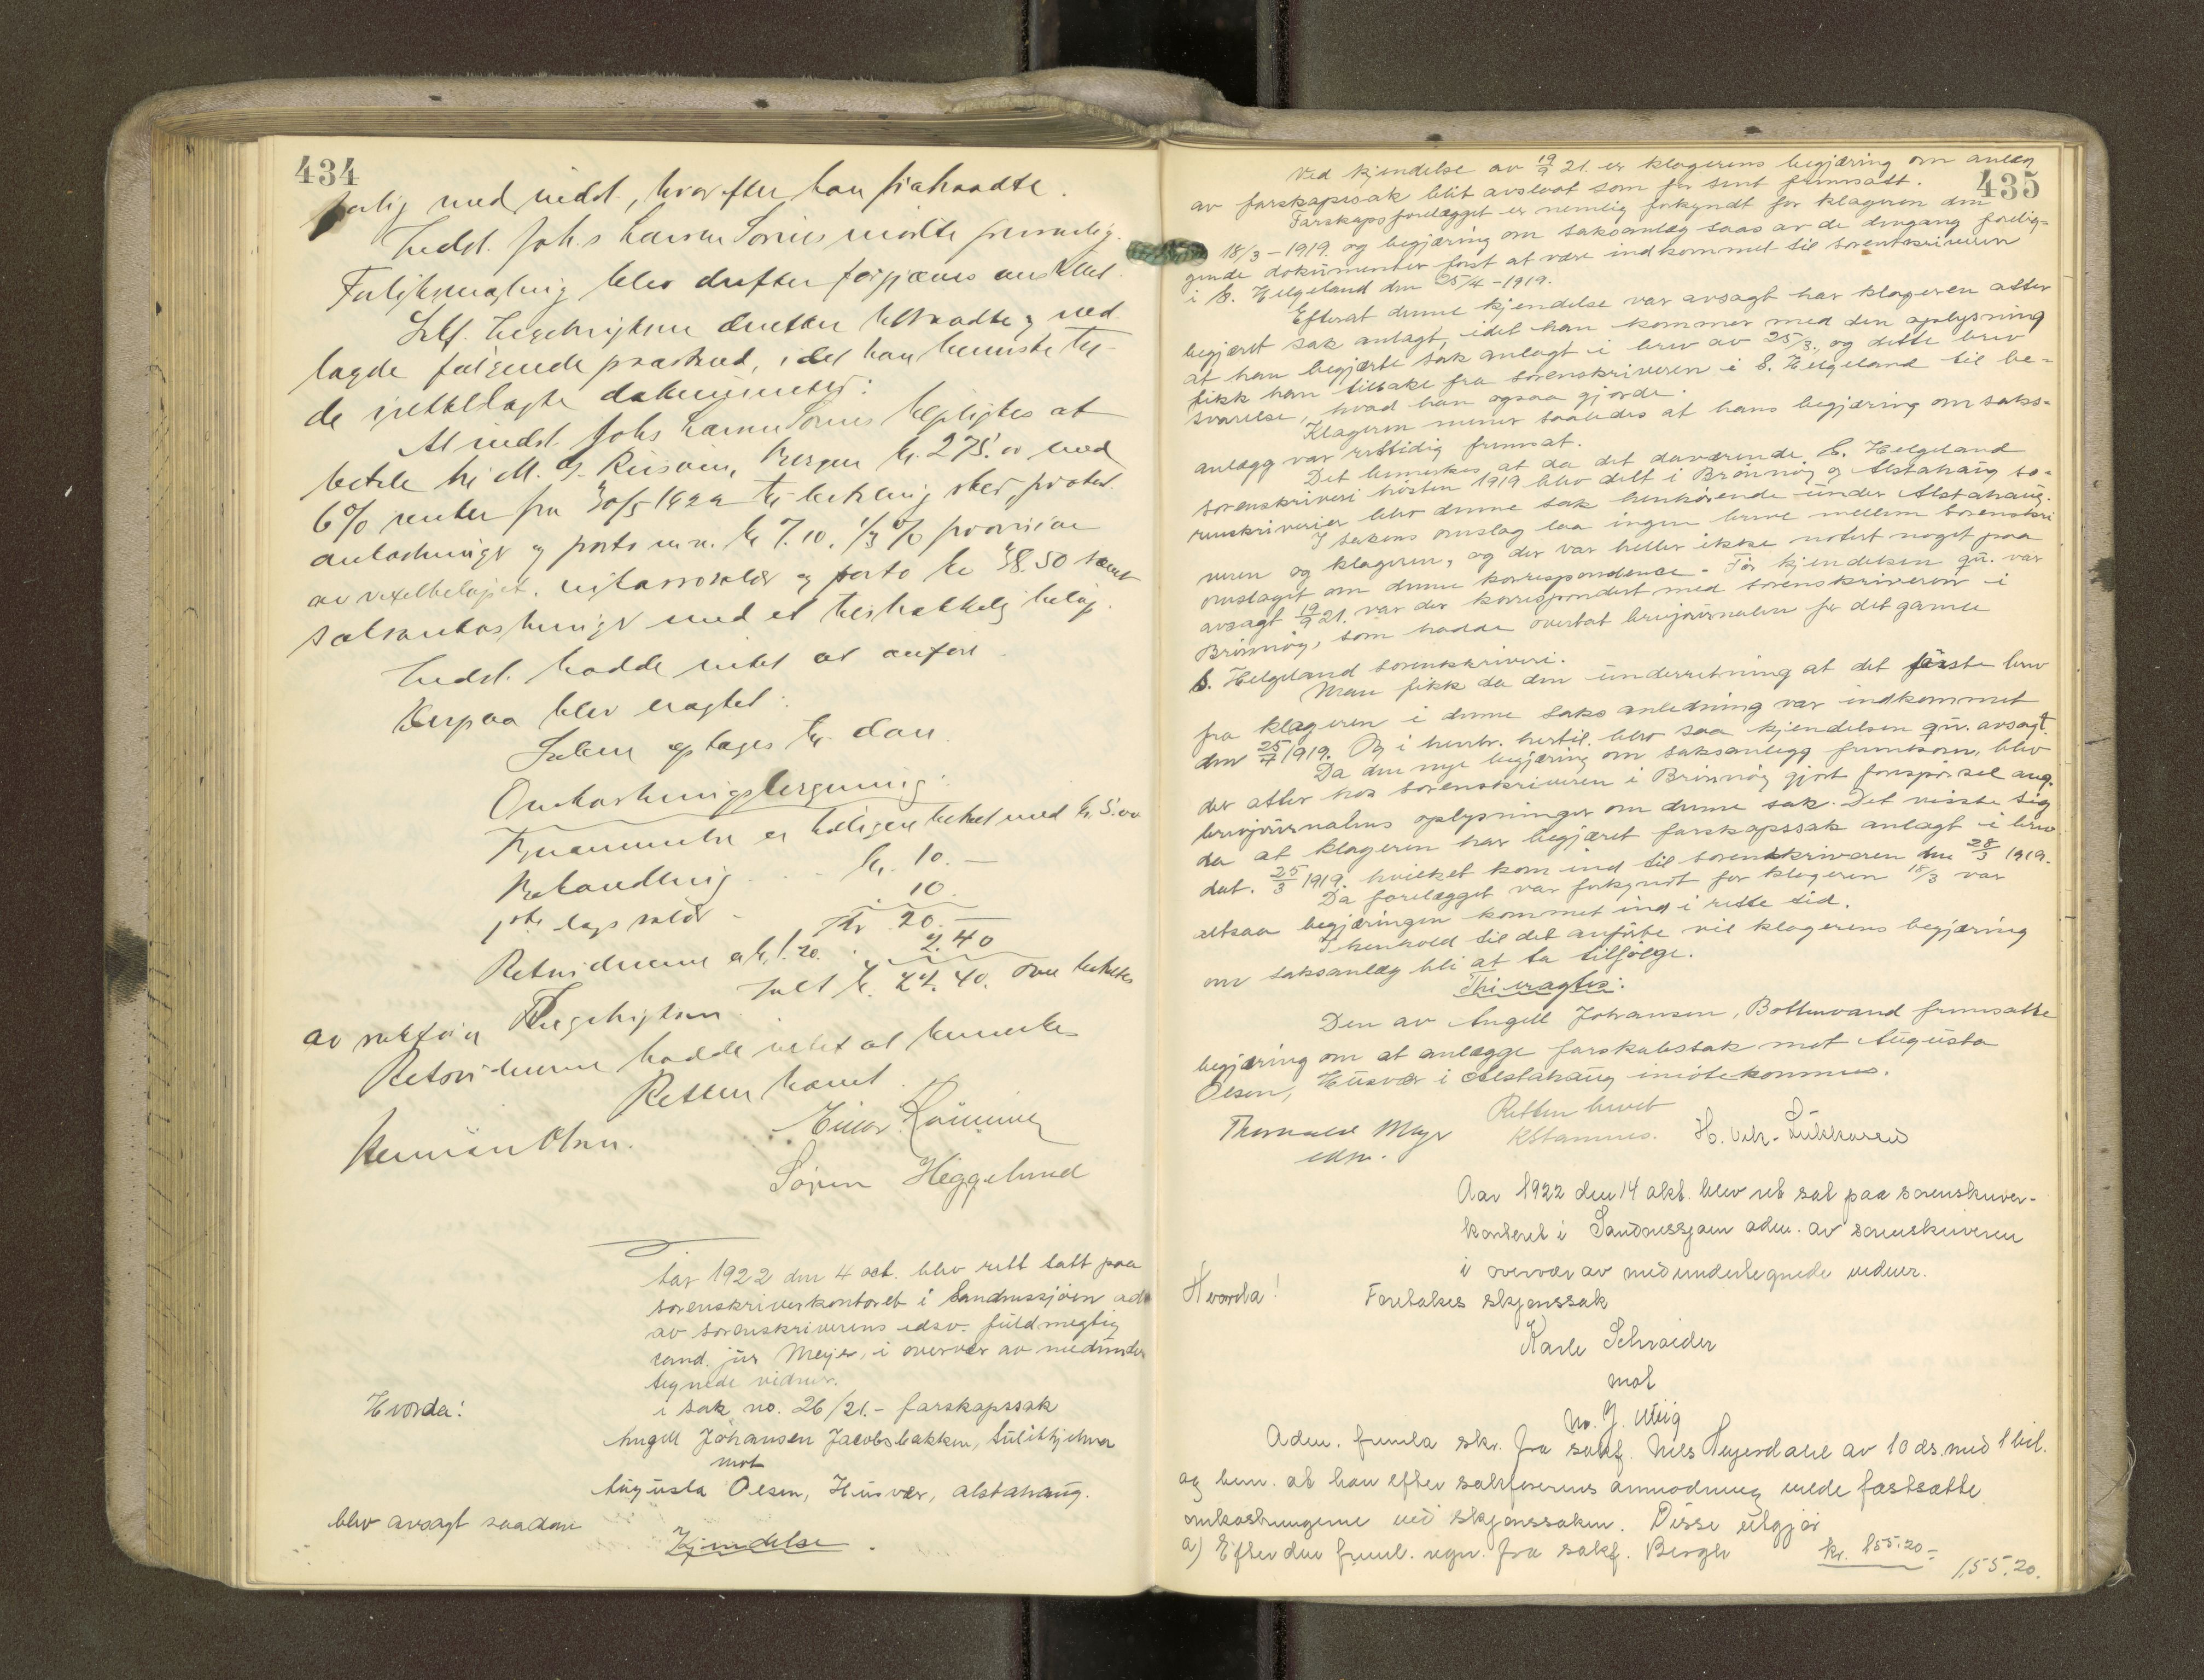 434
forlig med indst., hvorefter han fratraadte.
Indst. Johs Larsen Tornes mødte personlig.
Forliksmægling blev derefter forgjæves anstillet.
Skf. Hegehrigtsen derefter tiltraadte og ned-
lagde følgende paastand, idet han henviste til
de i rettelagte dokumenter:
At indst. Johs Larsen Tornes tilpligtes at
betale til M. G. Bergen kr. 275.00 med
6% renter fra 30/5 1922 til betaling sker, protest
omkostninger og porto m.v. kr 7.10, 1/3 % provision
av vexelbeløpet, inkassosalær og porto kr 38.50 samt
saksomkostninger med et tilstrækkelig beløp.
Indst. hadde intet at anføre
Derpaa blev eragtet:
Saken optages til dom.
Omkostningsberegning:
er tidligere betalt med kr. 5.00
Behandling . . . kr. 10. —
1ste dags salær - 10.
Kr 20. —
Retsvidnerne a kr. 1.20. . . 2.40
Ialt kr. 22.40. som betaltes
av sakfører
Retsvidnerne hadde intet at bemerke
Retten hævet.
Herman Olsen. Einar
Søren Heggelund
Aar 1922 den 4 oct. blev rett satt paa
sorenskriverkontoret i Sandnessjøen ad
av sorenskriverens edsv. fuldmegtig
cand. jur Meyer, i overvær av medunder
tegnede vidner.
Hvorda:
i sak no. 26/21. - farskapssak
Angell Johansen Jacobsbakken, Sulitjelma
mot
Augusta Olsen, Husvær, Alstahaug.
blev avsagt saadan
Kjendelse.
435
Ved kjendelse av 19/9 21. er klagerens begjæring om anlæg
av farskapssak blit avslaat som for sent fremsatt.
Farskapsforelægget er nemlig forkyndt for klageren den
18/3 - 1919. og begjæring om saksanlæg saas av de dengang forelig-
gende dokumenter først at være indkommet til sorenskriveren
i S. Helgeland den 25/4 - 1919.
Efterat denne kjendelse var avsagt har klageren atter
begjæret sak anlagt, idet han kommer med den oplysning
at han begjærte sak anlagt i brev av 25/3., og dette brev
fikk han tilbake fra sorenskriveren i S. Helgeland til be-
svarelse, hvad han ogsaa gjorde.
Klageren mener saaledes at hans begjæring om saks-
anlægg var rettidig fremsat.
Det bemerkes, at da det daværende S. Helgeland
sorenskriveri høsten 1919 blev delt i Brønnøy og Alstahaug so-
renskriverier blev denne sak henhørende under Alstahaug.
I sakens omslag laa ingen breve mellem sorenskri
veren og klageren, og der var heller ikke notert noget paa
omslaget om denne korrespondence. Før kjendelsen qu. var
avsagt 19/9 21. var der korrespondert med sorenskriveren i
Brønnøy, som hadde overtat brevjournalen for det gamle
S. Helgeland sorenskriveri.
Man fikk da den underretning at det første brev
fra klageren i denne saks anledning var indkommet
den 25/4 1919. Og i henh. hertil blev saa kjendelsen qu. avsagt.
Da den nye begjæring om saksanlegg fremkom, blev
der atter hos sorenskriveren i Brønnøy gjort forespørsel ang.
brevjournalens oplysninger om denne sak. Det visste sig
da at klageren har begjæret farskapssak anlagt i brev
dat. 25/3 1919. hvilket kom ind til sorenskriveren den 28/3 1919.
Da forelægget var forkyndt for klageren 18/3 var
altsaa begjæringen kommet ind i rette tid.
I henhold til det anførte vil klagerens begjæring
om saksanlæg bli at ta tilfølge.
Thi eragtes:
Den av Angell Johansen, Bottenvand fremsatte
begjæring om at anlægge farskabssak mot Augusta
Olsen, Husvær i Alstahaug imøtekommes.
Retten hevet
Thorvald Meyer
edsv. KStamnes. H. Vik-
Aar 1922 den 14 okt. blev ret sat paa sorenskriver-
kontoret i Sandnessjøen adm. av sorenskriveren
i overvær av medundertegnede vidner.
Hvorda!
Foretakes skjønssak
Karle Schrøider
mot
No. J. Utvig
Adm. fremla skr. fra sakf. Nils Tegerdahl av 10 ds. med 1 bil.
og bem. at han efter sakførerens anmodning vilde fastsætte
omkostningerne ved skjønssaken. Disse utgjør
a) Efter den freml. regn. fra sakf. Bergh kr. 155.20 =
155.20.